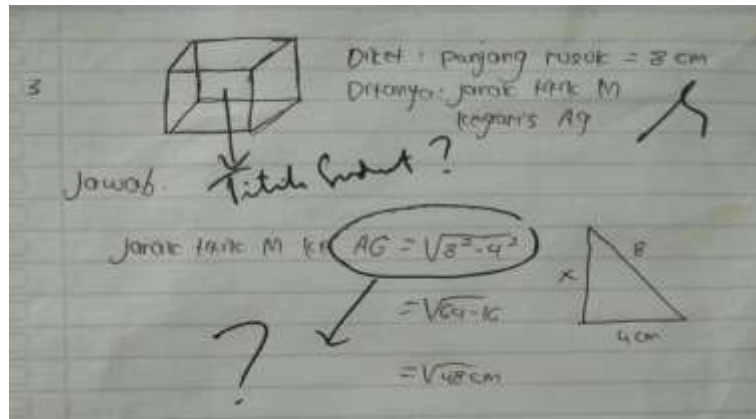 3
Diket : panjang rusuk = 8 cm
Ditanya : jarak titik M
kegaris AG
Jawab.
Titik Sudut ?
Jarak titik M ke AG = √8² - 4²
= √64 - 16
= √48 cm
x
8
4 cm
?